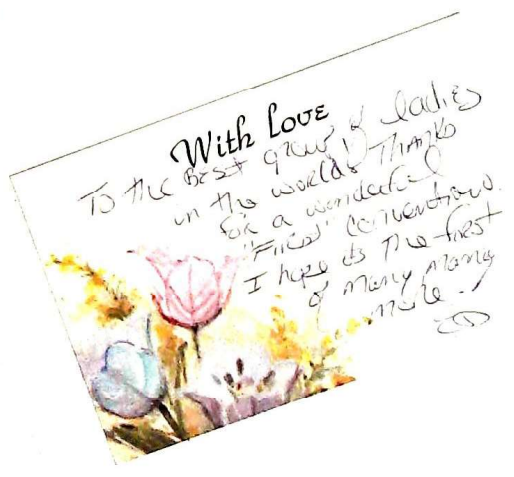 With Love
To the Best group of ladies
in the world! Thanks
for a wonderful
"First" convention.
I hope its the first
of many many
more.